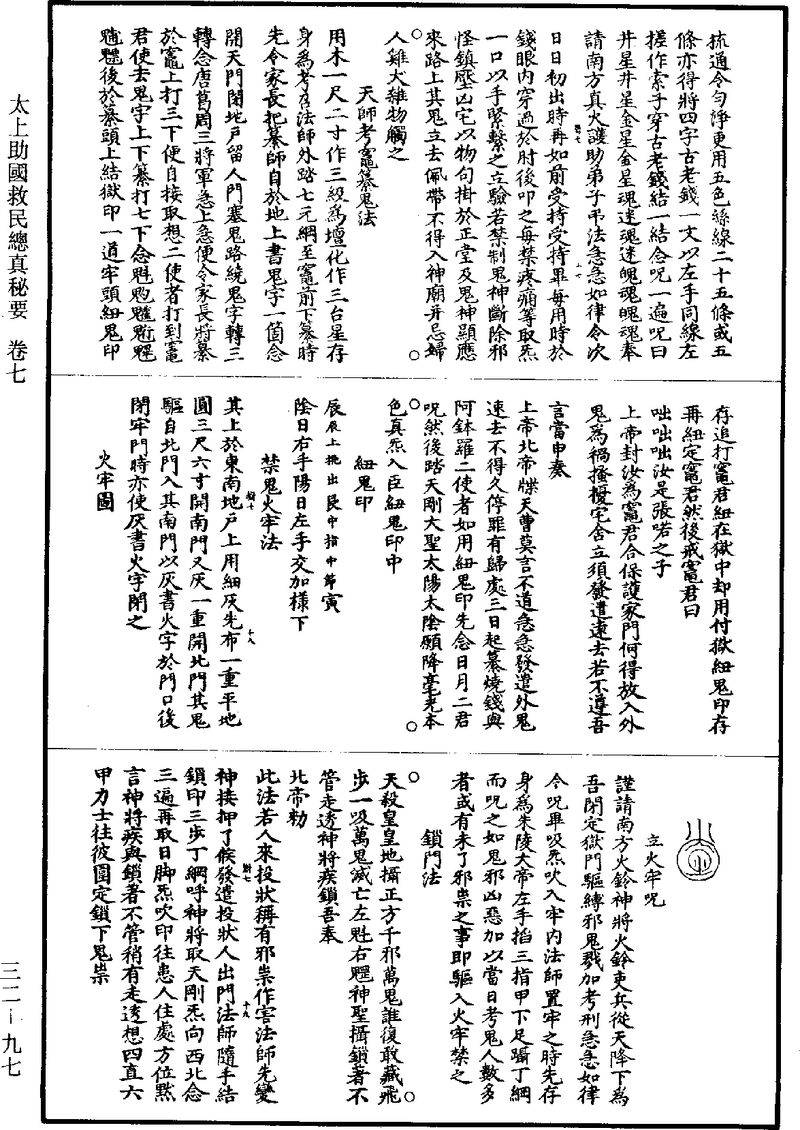 太上助國救民總真秘要　卷七
三二—九七
梳通令勻淨更用五色絲線二十五條或五
條亦得將四字古老錢一文以左手同線左
搓作索子穿古老錢結一結念呪一遍呪曰
井星井星金星金星魂迷魂迷魄魂魄魂奉
請南方真火護助弟子弔法急急如律令次
日日初出時再如前受持受持畢每用時於
錢眼內穿過於肘後叩之每禁疼痛等取炁
一口以手緊繫之立驗若禁制鬼神斷除邪
怪鎮壓凶宅以物勾掛於正堂及鬼神顯應
來路上其鬼立去佩帶不得入神廟并忌婦
人雞犬雜物觸之
天師考竈纂鬼法
用木一尺二寸作三級為壇化作三台星存
身為考召法師外踏七元綱至竈前下纂時
先令家長把纂師自於地上書鬼字一箇念
開天門閉地戶留人門塞鬼路繞鬼字轉三
轉念唐葛周三將軍急上急便令家長將纂
於竈上打三下便自接取想二使者打到竈
君使去鬼字上下纂打七下念魁
後於纂頭上結獄印一道牢頭紐鬼印
存追打竈君紐在獄中却用付獄紐鬼印存
再紐定竈君然後戒竈君曰
咄咄咄汝是張喏之子
上帝封汝為竈君合保護家門何得放入外
鬼為禍搔擾宅舍立須發遣速去若不遵吾
言當申奏
上帝北帝牒天曹莫言不道急急發遣外鬼
速去不得久停罪有歸處三日起纂燒錢與
阿鉢羅二使者如用紐鬼印先念日月二君
呪然後踏天剛大聖太陽太陰願降毫光本
色真炁入臣紐鬼印中
紐鬼印
辰辰上挑出艮中指中節寅
陰日右手陽日左手交加樣下
禁鬼火牢法
其上於東南地戶上用細灰先布一重平地
圓三尺六寸開南門又灰一重開北門其鬼
驅自北門入其南門以灰書火字於門口後
閉牢門時亦使灰書火字閉之
火牢圖
立火牢呪
謹請南方火鈴神將火鈴吏兵從天降下為
吾閉定獄門驅縛邪鬼戮加考刑急急如律
令呪畢吸炁吹入牢內法師置牢之時先存
身為朱陵大帝左手掐三指甲下足躡丁綱
而呪之如鬼邪凶惡加以當日考鬼人數多
者或有未了邪祟之事即驅入火牢禁之
鎖門法
天殺皇皇地攝正方千邪萬鬼誰復敢藏飛
步一吸萬鬼滅亡左魁右魓神聖攝鎖著不
管走透神將疾鎖吾奉
北帝勑
此法若人來投狀稱有邪祟作害法師先變
神接押了候發遣投狀人出門法師隨手結
鎖印三步丁綱呼神將取天剛炁向西北念
三遍再取日脚炁吹印往患人住處方位黙
言神將疾與鎖著不管稍有走透想四直六
甲力士往彼圍定鎖下鬼祟